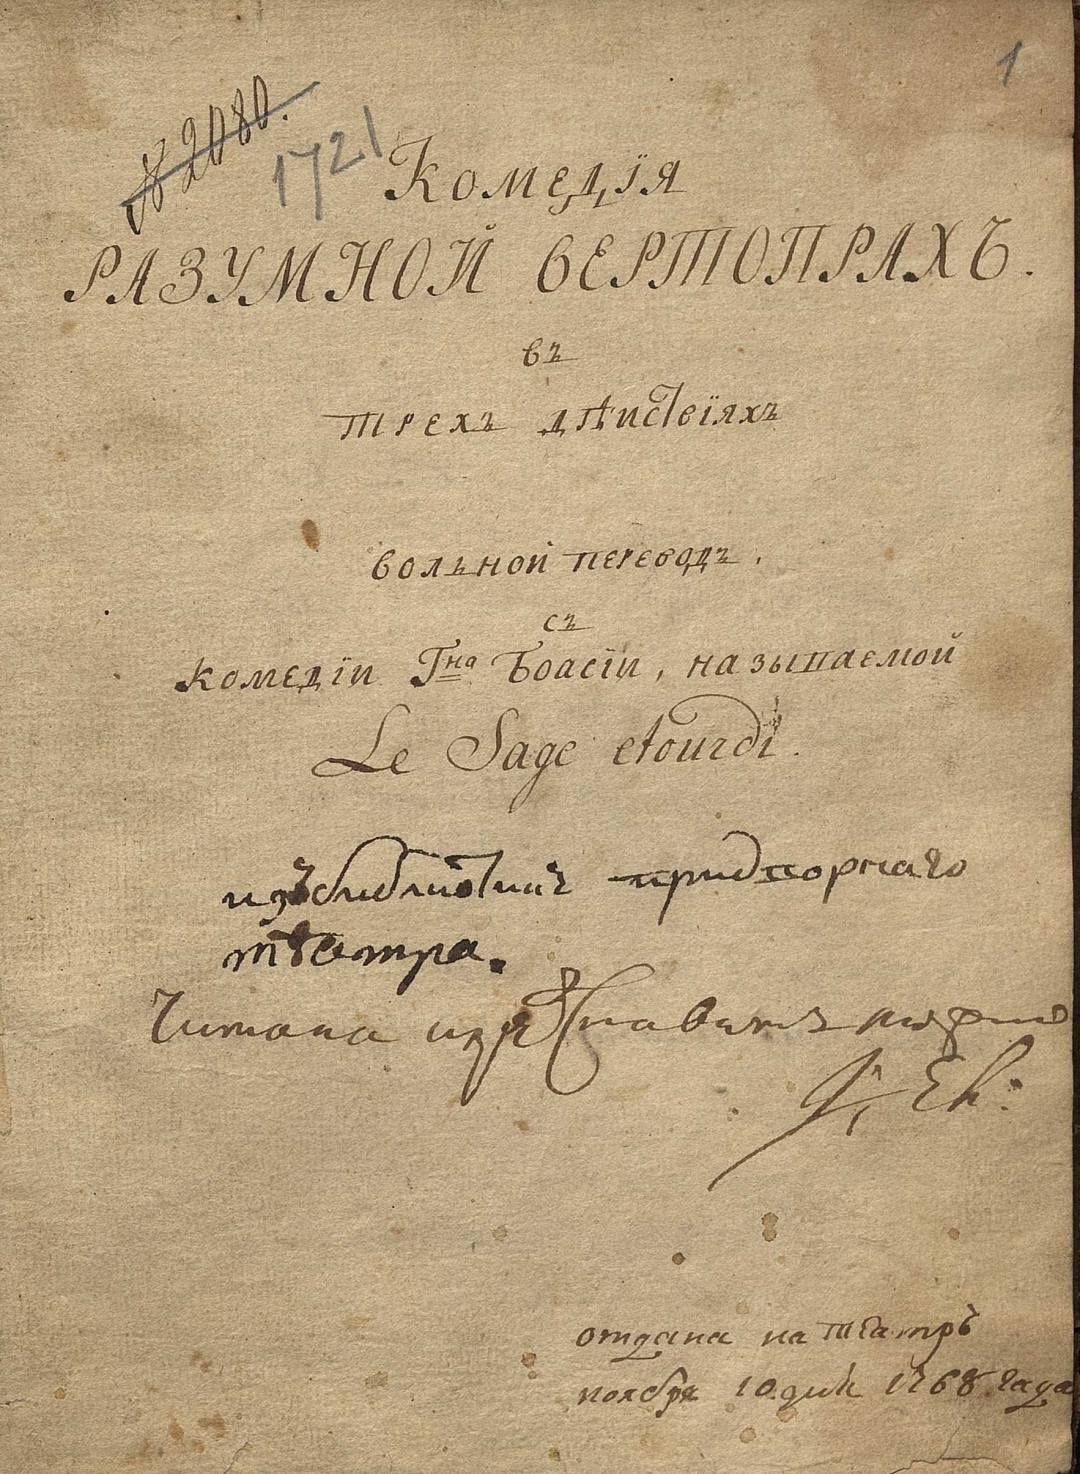 1
№ 2080.
1721
Комедїя
РАЗУМНОЙ ВЕРТОПРАХЪ.
въ
трехъ дѣиствїяхъ
вольной переводъ.
съ
комедїи Гна Боасїи, называемой
Le Sage etourdi.
изъ библиотики придворнаго
театра.
Читана
отдана на театръ
ноября 10 дня 1768 года